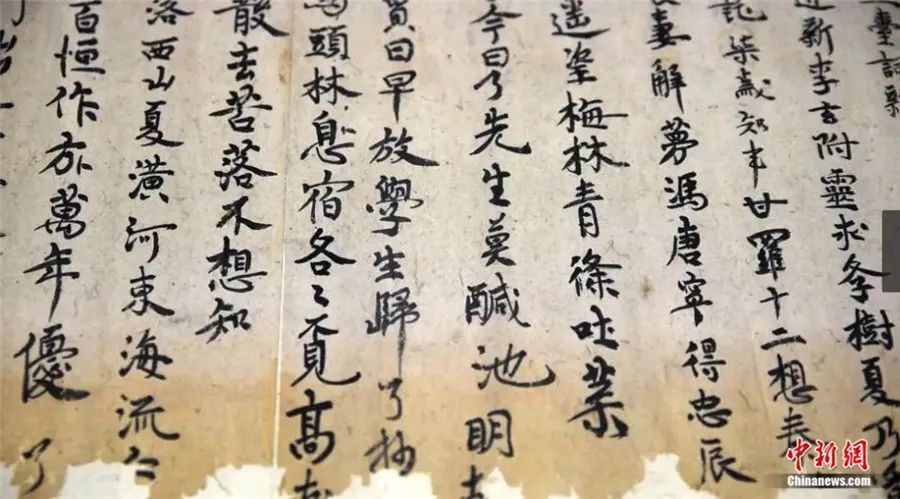 臺詞新
迎新李玄附靈求学樹夏乃
託柒歲知事甘羅十二想秦
妻解夢馮唐寧得忠辰
遥望梅林青條吐葉
今日了先生莫醎池明
賈日早放學生歸了抄
頭林息宿各々覓高
散去苦落不想知
落西山夏潢河東海流
百恒作方萬年優了
中新網
Chinanews.com